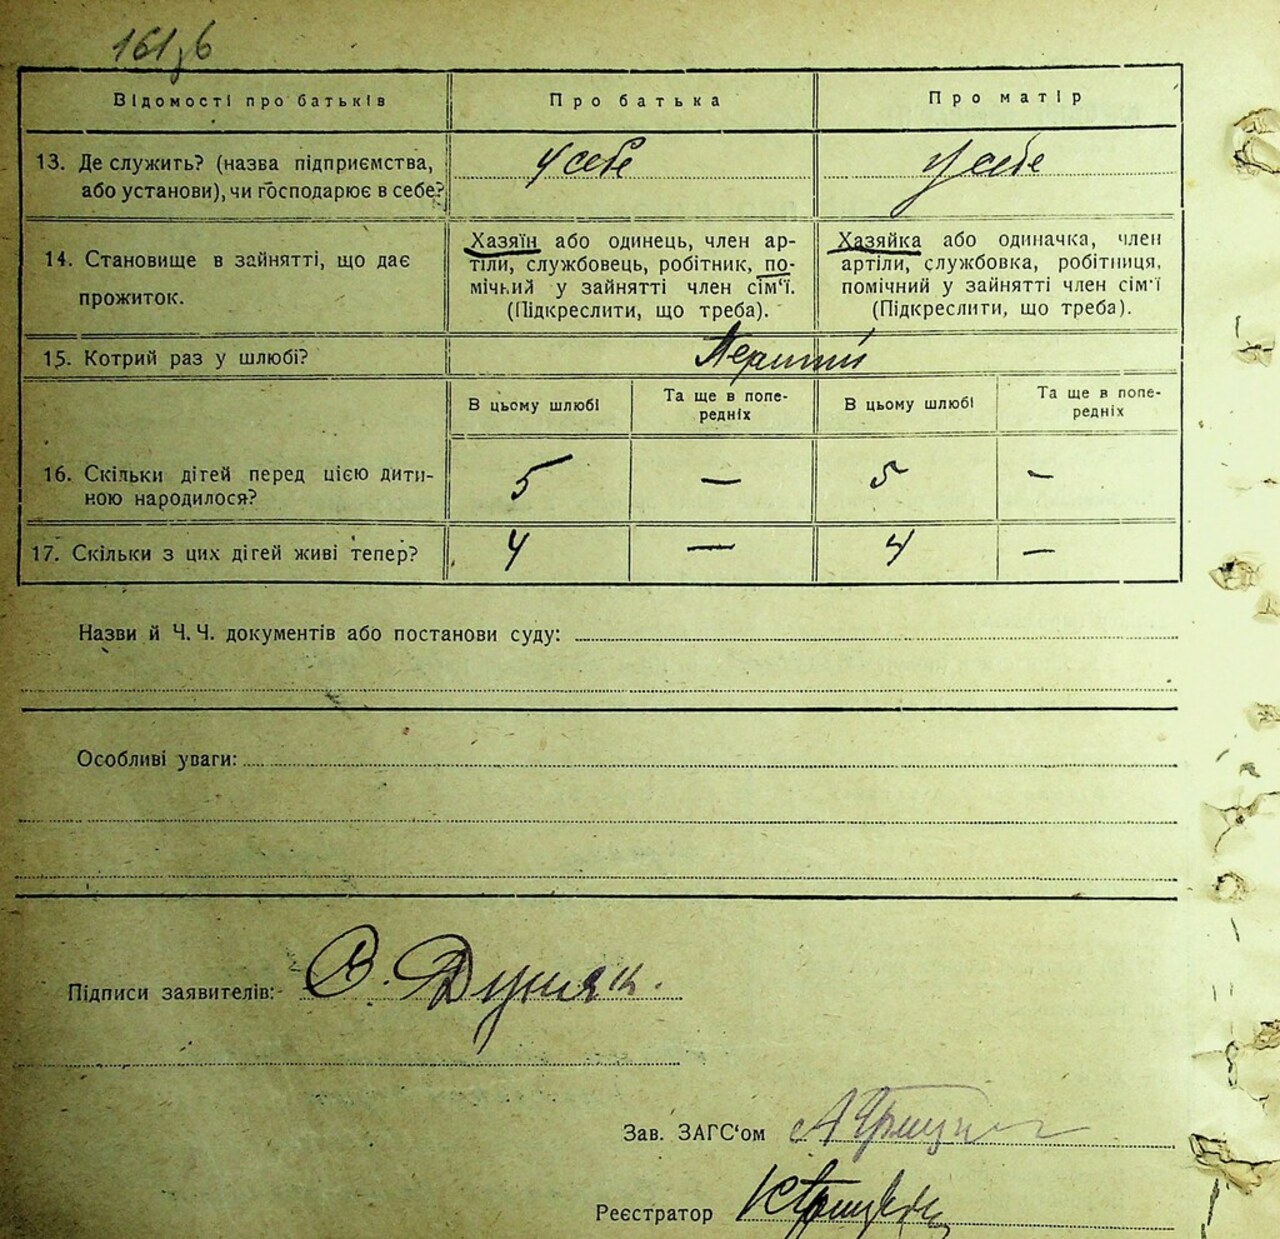 161зб
Відомості про батьків Про батька Про матір
13. Де служить? (назва підприємства, або установи), чи господарює в себе? у себе у себе
14. Становище в зайнятті, що дає прожиток.
Хазяїн або одинець, член ар-
тіли, службовець, робітник, по-
мічний у зайнятті член сім'ї.
(Підкреслити, що треба).
Хазяйка або одиначка, член
артіли, службовка, робітниця,
помічний у зайнятті член сім'ї
(Підкреслити, що треба).
15. Котрий раз у шлюбі? Перший
В цьому шлюбі Та ще в попе-
редніх В цьому шлюбі Та ще в попе-
редніх
16. Скільки дітей перед цією дити-
ною народилося? 5 — 5 —
17. Скільки з цих дітей живі тепер? 4 — 4 —
Назви й Ч. Ч. документів або постанови суду:
Особливі уваги:
Підписи заявителів: В. Дуняк.
Зав. ЗАГС'ом
Реєстратор